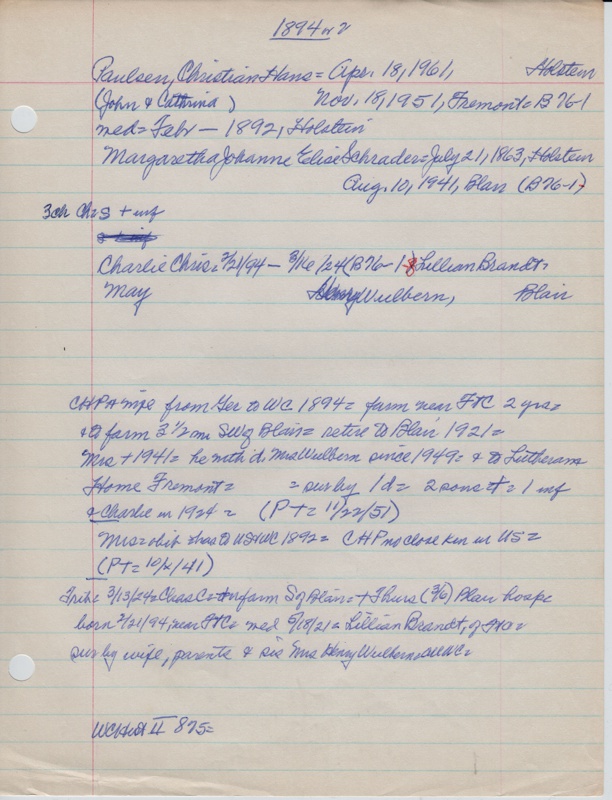 1894 or 2
Paulsen, Christian Hans = Apr. 18, 1961, Holstein
(John & Cathrina) Nov. 18, 1951, Fremont = B 76-1
med = Febr — 1892, Holstein
Margaretha Johanne Elise Schrader = July 21, 1863, Holstein
Aug. 10, 1941, Blair (B76-1)
3ch Chas + inf
Charlie Chris = 2/21/94 — 3/16/24 (B76-1) & Lillian Brandt =
May Henry Wulbern, Blair
CHPA wife from Ger to WC 1894 = farm near FtC 2 yrs =
& to farm 3 1/2 m SW of Blair = retire to Blair 1921 =
Mrs + 1941 = he with d Mrs Wulbern since 1949 = & to Lutheran
Home Fremont = = sur by 1d = 2 sons + = 1 inf
& Charlie in 1924 = (PT = 11/22/51)
Mrs = obit has to US & WC 1892 = CHP no close kin in US =
(PT = 10/2/41)
Trib = 3/13/24 = Chas C = farm S of Blair = + Thurs (3/6) Blair hosp =
born 2/21/94, near FtC = med 5/18/21 = Lillian Brandt, of FtC =
sur by wife, parents & sis Mrs Henry Wulbern, all WC =
WC Hist II 875 =